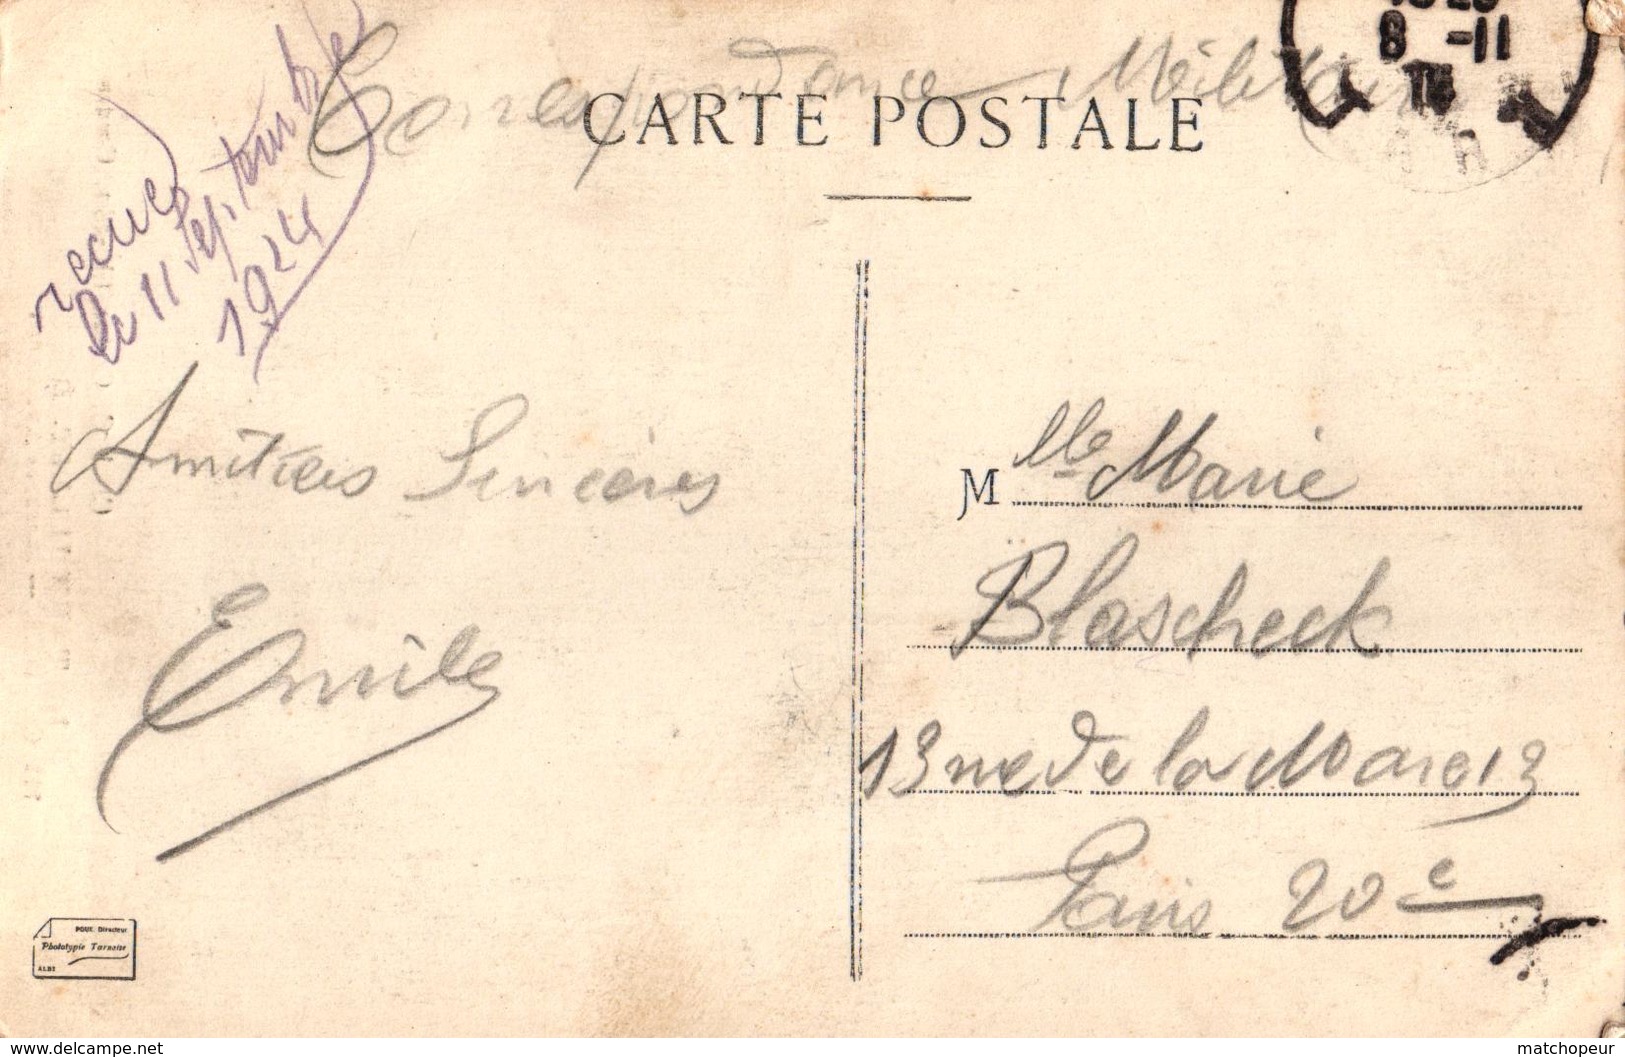 Correspondance Militaire
CARTE POSTALE
8 -11
recue
Le 11 Septembre
1924
Amitiées Sincères
Emile
M lle Marie
Blascheck
13 rue de la Mare 13
Paris 20e
POUX, Directeur
Phototypie Tarnaise
ALBI
www.delcampe.net
matchopeur